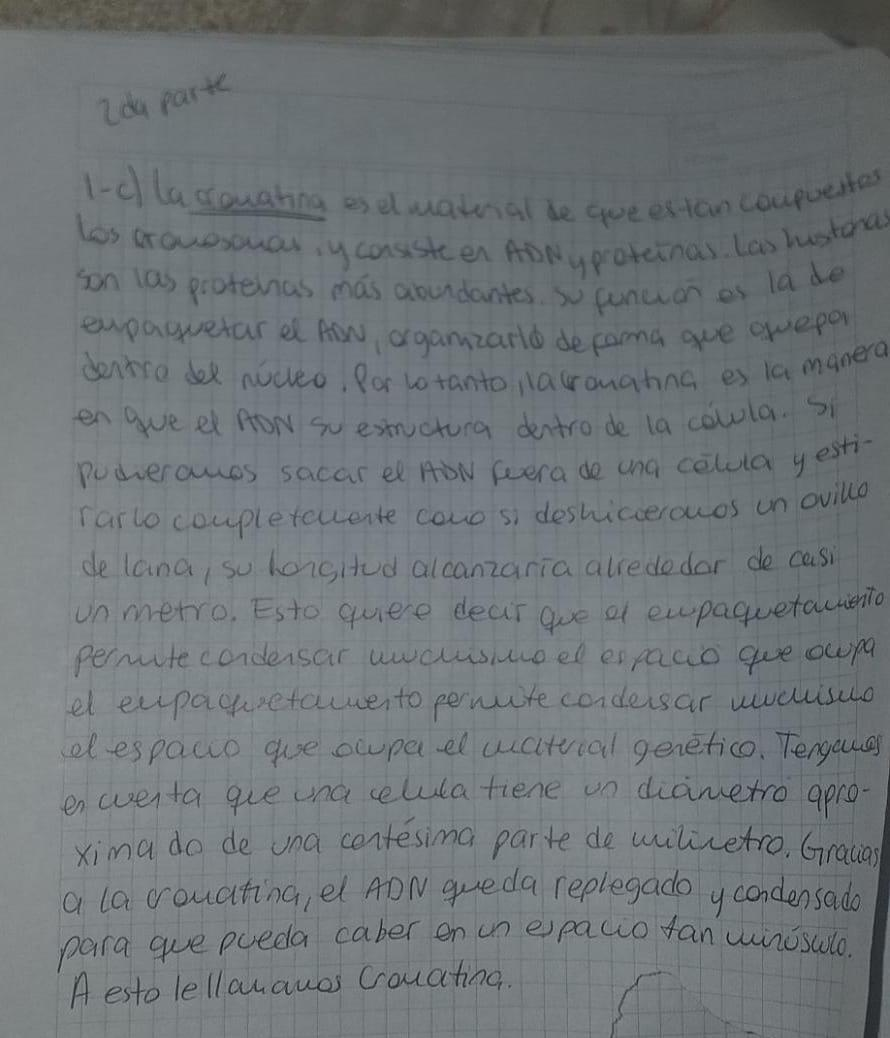 2da parte
1-c) La cromatina es el material de que estan compuestos
los cromosomas, y consiste en ADN y proteinas. Las histonas
son las proteinas más abundantes. Su función es la de
empaquetar el ADN, organizarlo de forma que quepa
dentro del núcleo. Por lo tanto, la cromatina es la manera
en que el ADN su estructura dentro de la célula. Si
pudieramos sacar el ADN fuera de una célula y esti-
rarlo completamente como si deshicieramos un ovillo
de lana, su longitud alcanzaría alrededor de casi
un metro. Esto quiere decir que el empaquetamiento
permite condensar muchisimo el espacio que ocupa
el empaquetamiento permite condensar muchisimo
el espacio que ocupa el material genético. Tengamos
en cuenta que una celula tiene un diámetro apro-
ximado de una centésima parte de milimetro. Gracias
a la cromatina, el ADN queda replegado y condensado
para que pueda caber en un espacio tan minúsculo.
A esto le llamamos Cromatina.